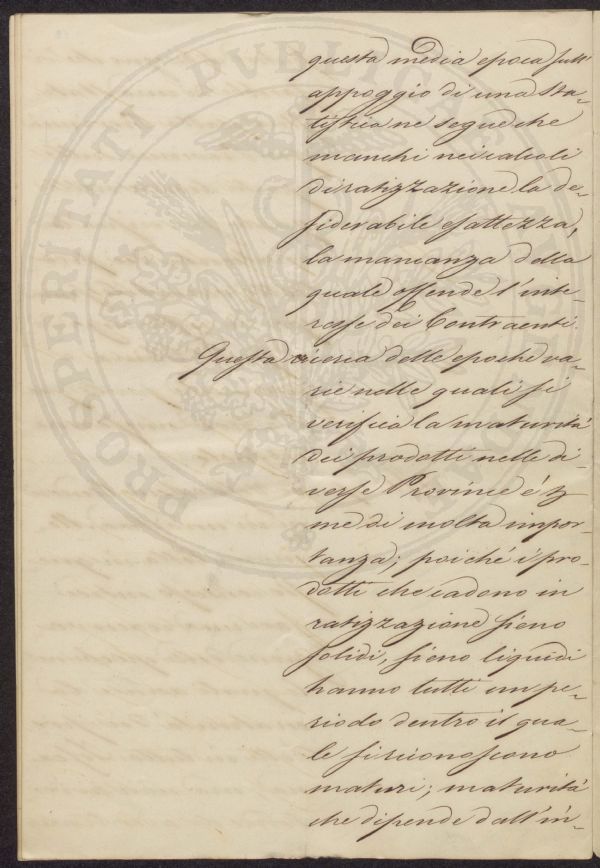 questa media epoca sull'
appoggio di una sta-
tistica ne segue che
manchi nei calcoli
di ratizzazione la de-
siderabile esattezza,
la mancanza della
quale offende l'inte-
resse dei Contraenti.
Questa ricerca delle epoche va-
rie nelle quali si
verifica la maturità
dei prodotti nelle di-
verse Provincie é
me di molta impor-
tanza; poiché i pro-
dotti che cadono in
ratizzazione sieno
solidi, sieno liquidi
hanno tutti un pe-
riodo dentro il qua-
le si riconoscono
maturi; maturità
che dipende dall'in-
PROSPERITATI PUBLICAE